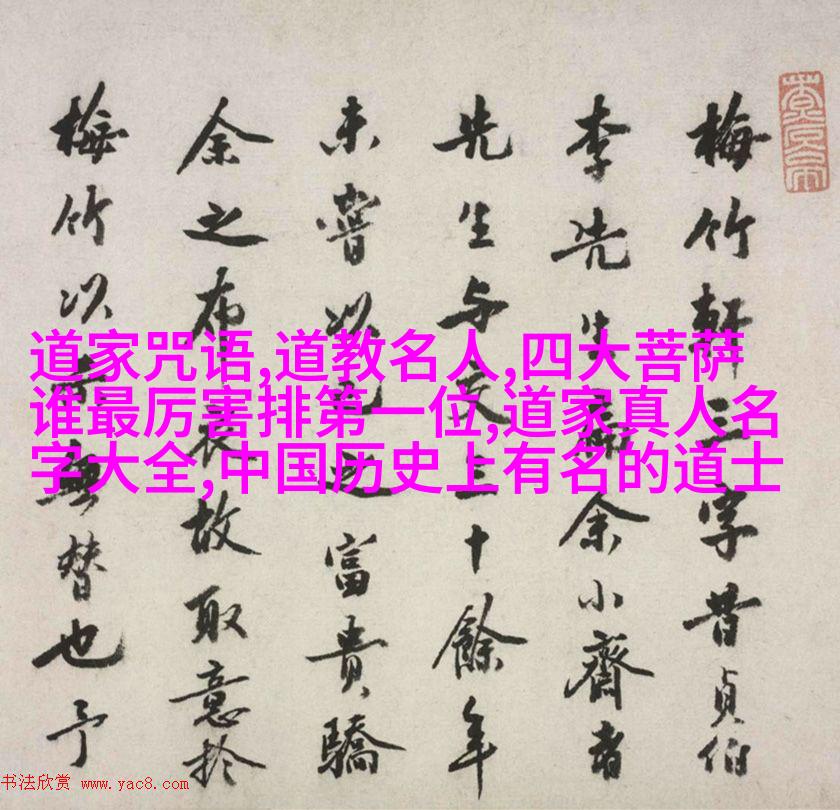 梅竹軒三字昔貞伯
李先生扁余小齋者
先生与交三十餘年
未嘗以之富貴驕
余之布衣故取意於
梅竹以無替也予
道家咒语,道教名人,四大菩萨
谁最厉害排第一位,道家真人名
字大全,中国历史上有名的道士
书法欣赏 www.yac8.com